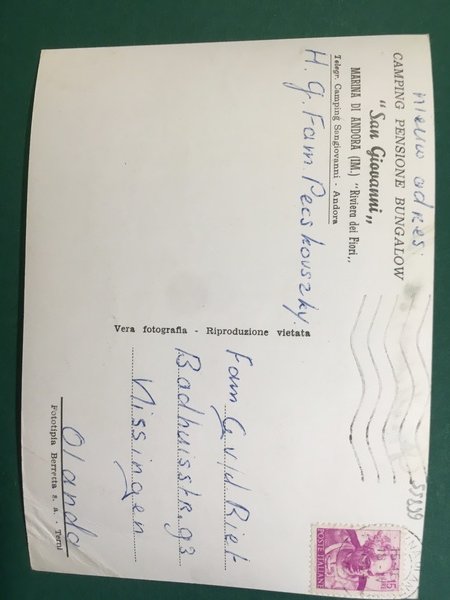 nieuw adres:
CAMPING PENSIONE BUNGALOW
"San Giovanni„
MARINA DI ANDORA (IM.) "Riviera dei Fiori„
Telegr. Camping Sangiovanni - Andora
H. G. Fam. Pecskovszky.
Vera fotografia - Riproduzione vietata
Fam G v/d Riet
Badhuisstr. 93
Vlissingen
Olanda
Fototipia Berretta s. a. - Terni
55839
L. 15
POSTE ITALIANE